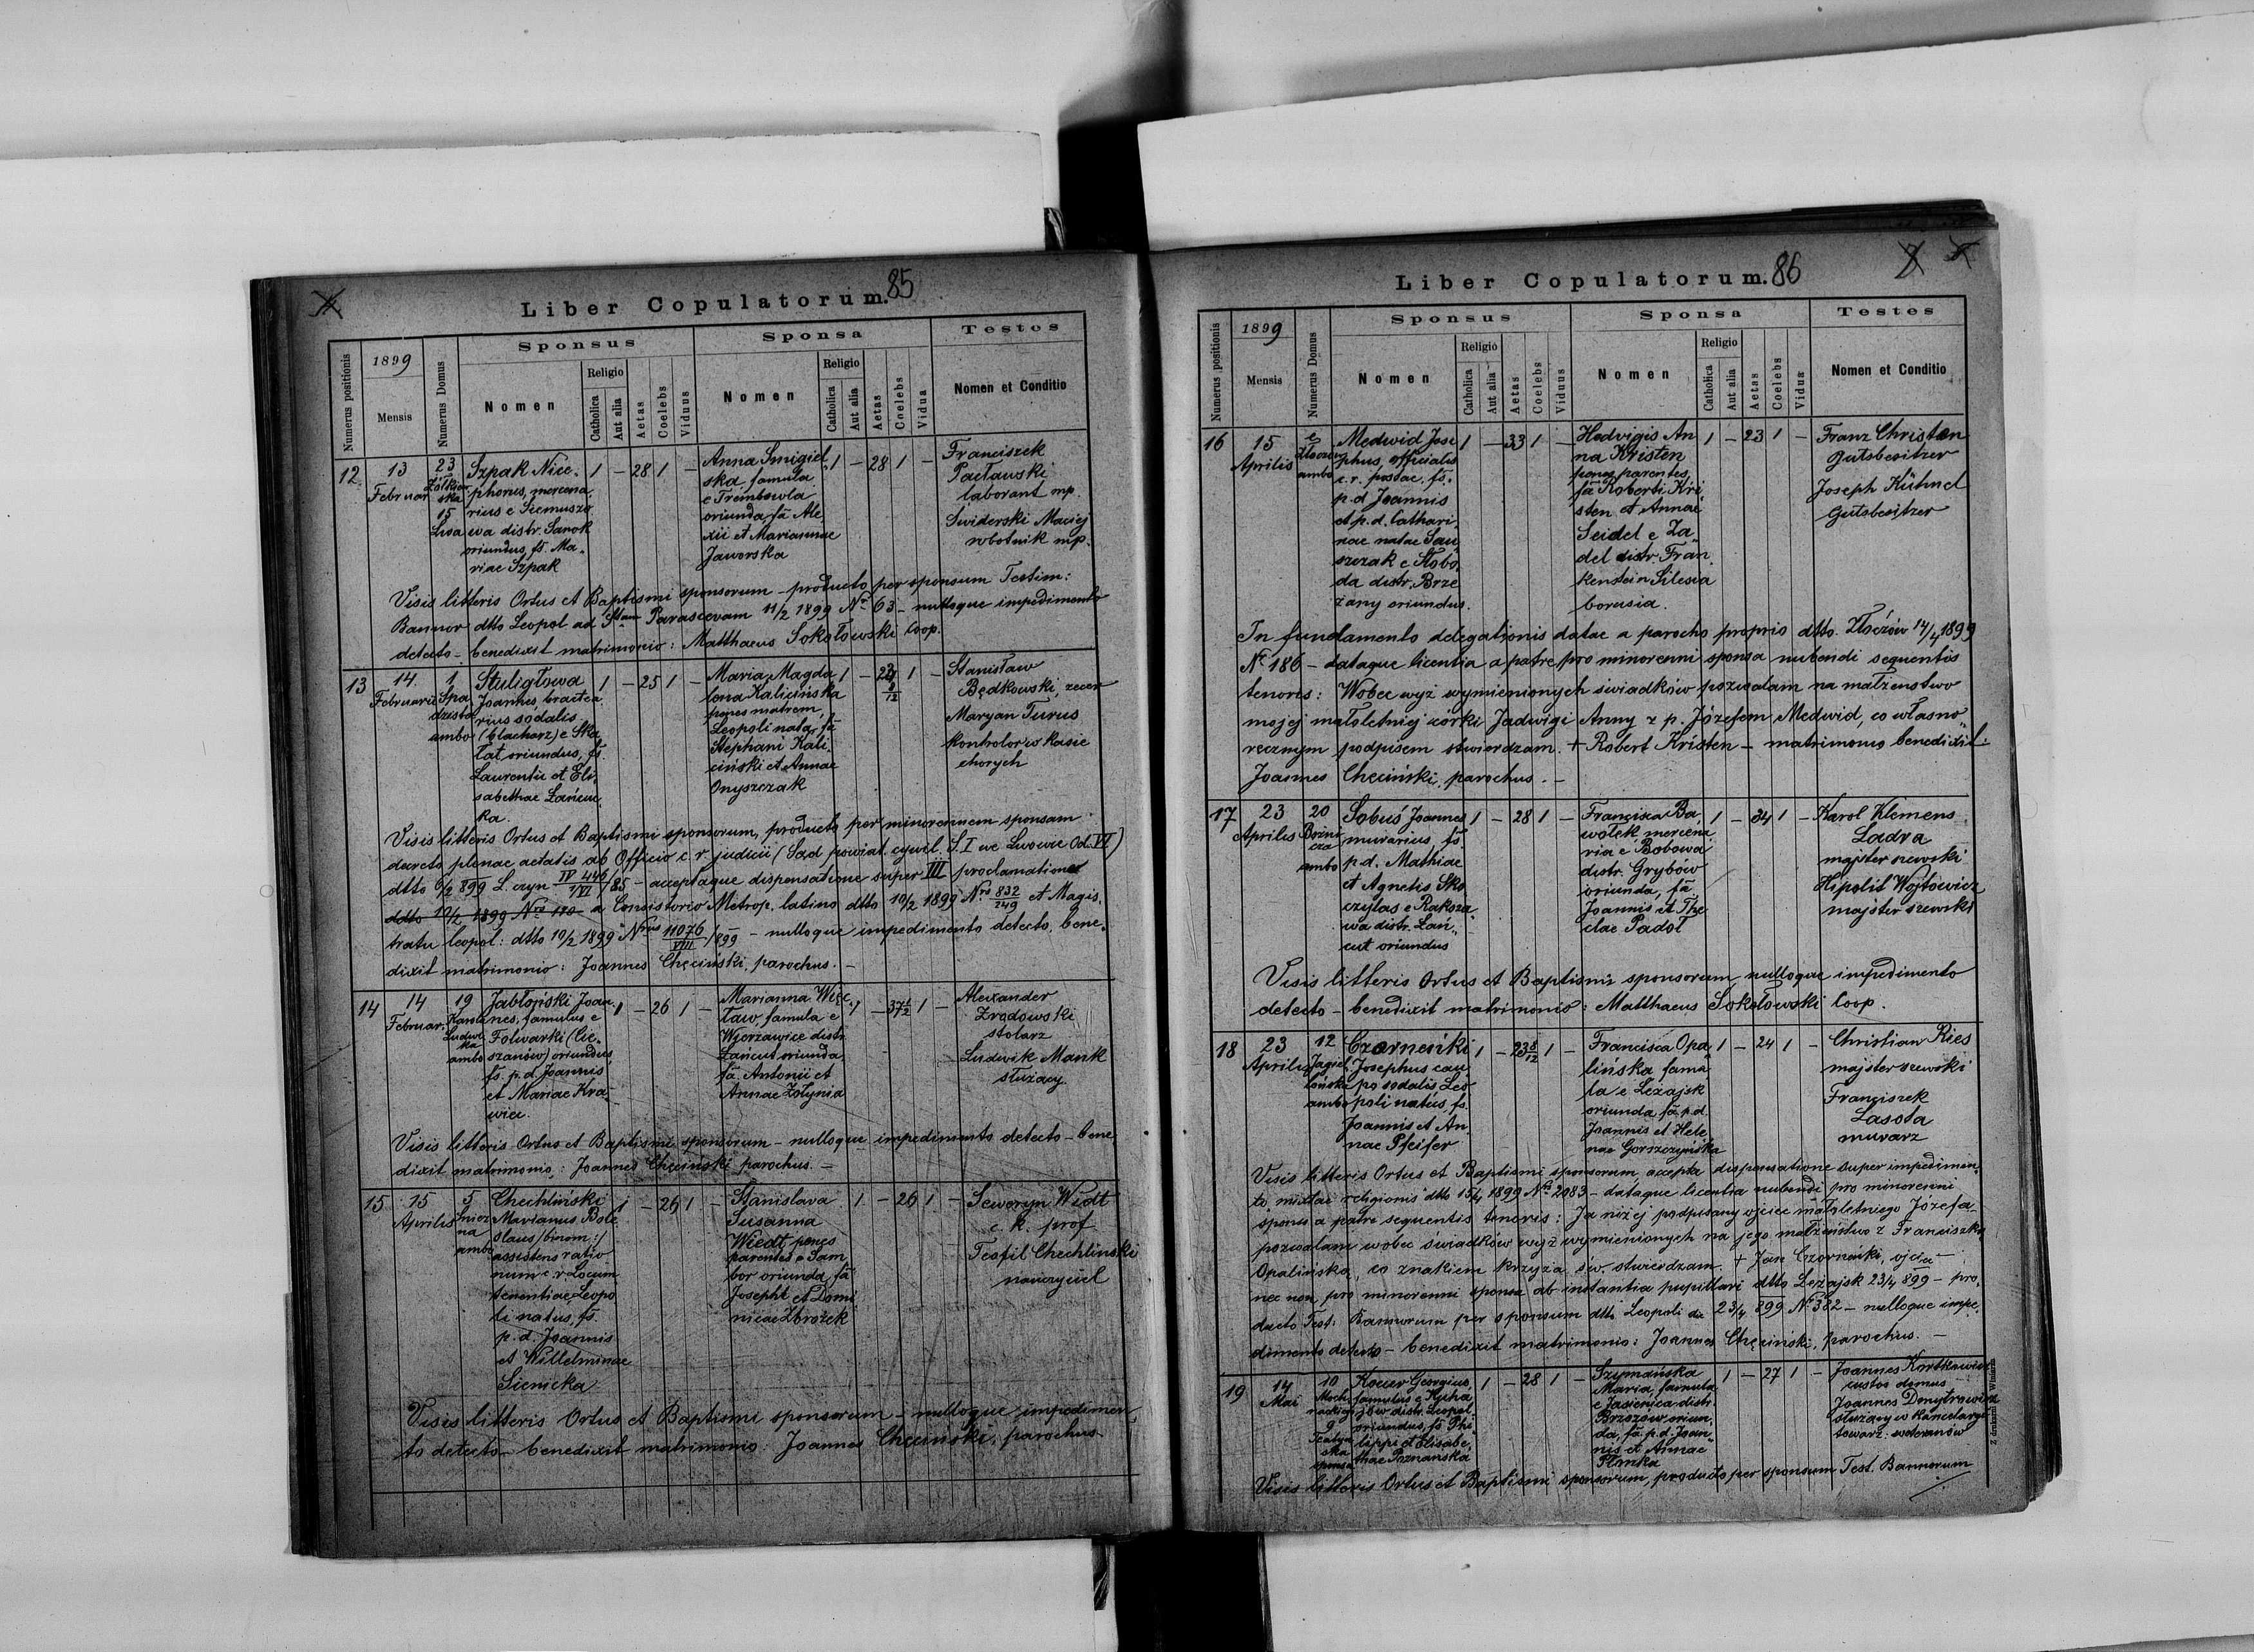 Liber Copulatorum. 85
Numerus positionis
1899
Mensis
Numerus Domus
Sponsus
Nomen
Religio
Catholica
Aut alia
Aetas
Coelebs
Viduus
Sponsa
Nomen
Religio
Catholica
Aut alia
Aetas
Coelebs
Vidua
Testes
Nomen et Conditio
12
13
Februar
23
Żółkiew
ska
15
Lwa
Szpak Nice
phorus, mercena
rius e Siemuszo
wa distr. Sanok
oriundus, fs. Ma
riae Szpak
1 – 28 1 –
Anna Smigiel
ska, famula
e Trembowla
oriunda, fa Ale
xii et Mariannae
Jaworska
1 – 28 1 –
Franciszek
Pacławski
laborant mp.
Świderski Maciej
robotnik mp.
Visis litteris Ortus et Baptismi sponsorum – producto per sponsum Testim:
Bannor dtto Leopol. ad Stam Parascevam 11/2 1899 Nr 63 – nulloque impedimento
detecto – benedixit matrimonio: Matthaeus Sokołowski Coop.
13
14
Februarii
1
ambo
Stuligłowa
Joannes, bractea
rius sodalis
(blacharz) e Ska
łat oriundus, fs.
Laurentii et Eli
sabethae Łańcuc
ka.
1 – 25 1 –
Maria Magda
lena Kalicińska
penes matrem,
Leopoli nata, fa
Stephani Kali
ciński et Annae
Onyszczak
1 –
1 –
Stanisław
Będkowski, zecer
Maryan Turus
kontrolor w kasie
chorych
Visis litteris Ortus et Baptismi sponsorum, producto per minorennem sponsam
dareto plenae aetatis ab Officio c. r. judicii (Sąd powiat. cywil. S. I we Lwowie Od. VI)
dtto 6/2 899 L. czyn IV 446/1/VI /85 – acceptaque dispensatione super III proclamationes
ddto 10/2 1899 Nro 170 a Consistorio Metrop. latino dtto 10/2 1899 Nro 832/249 et Magis.
tratu leopol: dtto 10/2 1899 Nrus 11076/VIII /899 – nulloque impedimento detecto, bene
dixit matrimonio: Joannes Chęciński, parochus. –
14
14
Februar.
19
Karola
Ludwi
ka
ambo
Jabłoński Joan
nes, famulus e
Folwarki (Cie
szanów) oriundus
fs. p. d. Joannis
et Mariae Kra
wiec.
1 – 26 1 –
Marianna Więc
ław, famula e
Wierzawice distr.
Łańcut oriunda
fa. Antonii et
Annae Żołynia
1 – 37½ 1 –
Alexander
Zradowski
stolarz
Ludwik Mank
służący
Visis litteris Ortus et Baptismi sponsorum – nulloque impedimento detecto – bene
dixit matrimonio: Joannes Chęciński parochus. –
15
15
Aprilis
5
ambo
Chechliński
Marianus Bole
slaus /:binom:/
assistens ratio
num c. r. Locum
tenentiae, Leopo
li natus, fs.
p. d. Joannis
et Willelminae
Sienicka
1 – 26 1 –
Stanislava
Susanna
Wiedt penes
parentes e Sam
bor oriunda, fa
Josephi et Domi
nicae Zbrożek
1 – 26 1 –
Seweryn Widt
c. k. prof
Teofil Chechliński
nauczyciel
Visis litteris Ortus et Baptismi sponsorum – nulloque impedimen
to detecto – benedixit matrimonio: Joannes Chęciński, parochus –
Liber Copulatorum. 86
Numerus positionis
1899
Mensis
Numerus Domus
Sponsus
Nomen
Religio
Catholica
Aut alia
Aetas
Coelebs
Viduus
Sponsa
Nomen
Religio
Catholica
Aut alia
Aetas
Coelebs
Vidua
Testes
Nomen et Conditio
16
15
Aprilis
e
Złoczów
ambo
Medwid Jose
phus, officialis
c. r. postae, fs.
p. d. Joannis
et p. d. Cathari
nae natae Sau
szczak e Słobo
da distr. Brze
żany oriundus.
1 – 33 1 –
Hedvigis An
na Kristen
penes parentes,
fa Roberti Kri
sten et Annae
Seidel e Za
del distr. Fran
kenstein Silesia
borusia.
1 – 23 1 –
Franz Christen
Gutsbesitzer
Joseph Kühnel
Gutsbesitzer
In fundamento delegationis datae a parocho proprio dtto. Złoczów 14/4 1899
Nr. 186 – dataque licentia a patre pro minorenni sponsa nubendi sequentis
tenoris: Wobec wyż wymienionych świadków pozwalam na małżeństwo
mojej małoletniej córki Jadwigi Anny z p. Józefem Medwid, co własno
ręcznym podpisem stwierdzam. + Robert Kristen – matrimonio benedixit:
Joannes Chęciński, parochus. –
17
23
Aprilis
20
Bożni
cza
ambo
Sobuś Joannes
murarius, fs
p. d. Mathiae
et Agnetis Sko
czylas e Raksza
wa distr. Łań
cut oriundus
1 – 28 1 –
Francisca Ba
wołek mercena
ria e Bobowa
distr. Grybów
oriunda, fa
Joannis et The
clae Padoł
1 – 34 1 –
Karol Klemens
Ladra
majster szewski
Hipolit Wojtowicz
majster szewski
Visis litteris Ortus et Baptismi sponsorum, nulloque impedimento
detecto – benedixit matrimonio: Matthaeus Sokołowski Coop.
18
23
Aprilis
12
Jagiel
lońska
ambo
Czorneński
Josephus cau
po sodalis Leo
poli natus, fs.
Joannis et An
nae Pfeifer
1 – 23 8/12 1 –
Francisca Opa
lińska famu
la e Leżajsk
oriunda, fa. p. d.
Joannis et Hele
nae Gorszczyńska
1 – 24 1 –
Christian Ries
majster szewski
Franciszek
Lasota
murarz
Visis litteris Ortus et Baptismi sponsorum, accepta dispensatione super impedimen
to mixtae religionis dtto 15/4 1899 Nro 2083 – dataque licentia nubendi pro minorenni
sponso a patre sequentis tenoris: Ja niżej podpisany ojciec małoletniego Józefa
pozwalam wobec świadków wyż wymienionych na jego małżeństwo z Franciszką
Opalińską, co znakiem krzyża św. stwierdzam. + Jan Czorneński, ojciec –
nec non pro minorenni sponsa ab instantia pupillari dtto Leżajsk 23/4 899 – pro
ducto Test: Bannorum per sponsum dtto Leopoli de 23/4 899 Nr 382 – nulloque impe
dimento detecto – benedixit matrimonio: Joannes Chęciński, parochus. –
19
14
Mai
10
Moch
nackiego
9
sponsa
Kocier Georgius
famulus e Kuha
jów distr. Leopol.
oriundus, fs. Phi
lippi et Elisabe
thae Poznańska
1 – 28 1 –
Szymańska
Maria, famula
e Jasienica distr.
Brzozów oriun
da, fa. p. d. Joan
nis et Annae
1 – 27 1 –
Joannes
custos domus
Joannes Dmytrowicz
służący w kancelaryi
towarz. weteranów
Visis litteris Ortus et Baptismi sponsorum, producto per sponsum Test. Bannorum
Z drukarni Winiarza